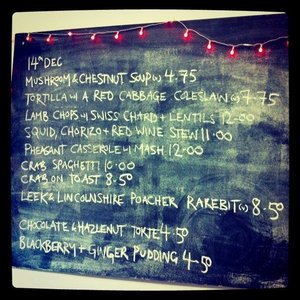 14TH DEC
MUSHROOM & CHESTNUT SOUP (V) 4.75
TORTILLA W/ A RED CABBAGE COLESLAW (V) 7.75
LAMB CHOPS W/ SWISS CHARD + LENTILS 12.00
SQUID, CHORIZO + RED WINE STEW 11.00
PHEASANT CASSEROLE W/ MASH 12.00
CRAB SPAGHETTI 10.00
CRAB ON TOAST 8.50
LEEK & LINCOLNSHIRE POACHER RAREBIT (V) 8.50
CHOCOLATE & HAZLENUT TORTE 4.50
BLACKBERRY + GINGER PUDDING 4.50